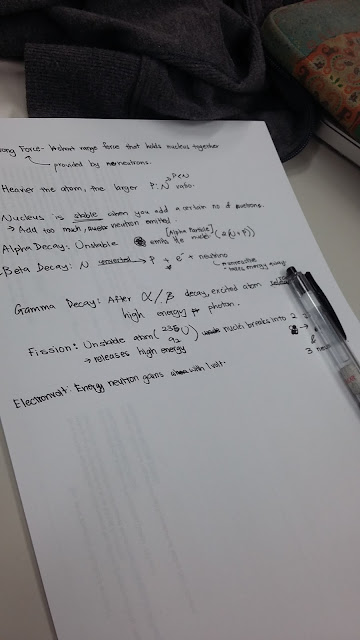 ong Force - short range force that holds nucleus together
provided by neutrons.
P<N
Heavier the atom, the larger P:N ratio.
Nucleus is stable when you add a certain no of neutrons.
→ Add too much, neutron emitted.
[Alpha Particle]
Alpha Decay: Unstable emits the nuclei (2(N+P))
Beta Decay: N converted→ P + e⁻ + neutrino
takes energy away
Gamma Decay: After α/β decay, excited atom
high energy photon.
Fission: Unstable atom (235 92 U) nuclei breaks into 2
→ releases high energy
3
Electronvolt: Energy neutron gains with 1 volt.